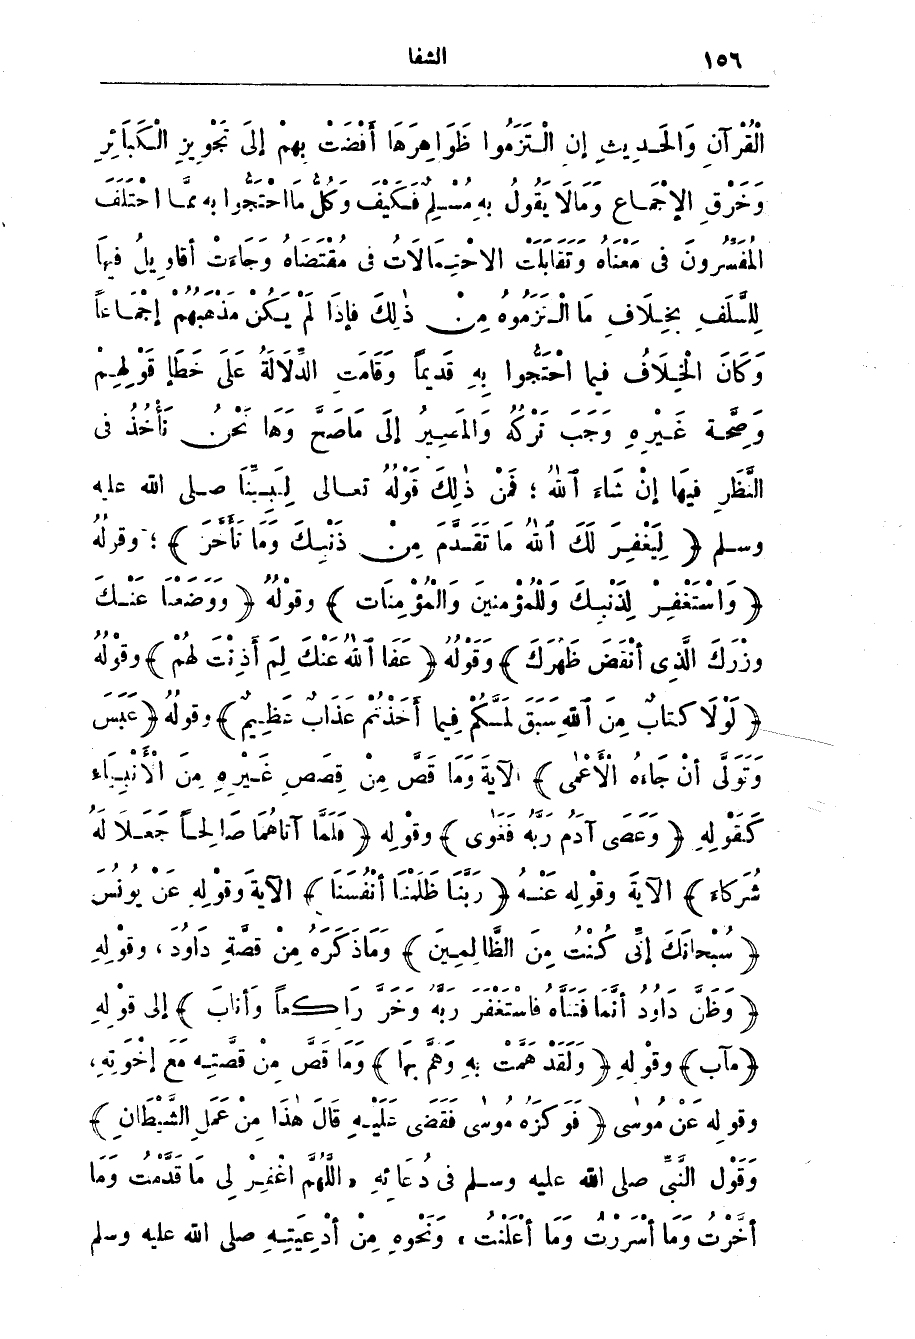 ١٥٦ الشفا
الْقُرْآنِ وَالْحَدِيثِ إِنِ الْتَزَمُوا ظَوَاهِرَهَا أَفْضَتْ بِهِمْ إِلَى تَجْوِيزِ الْكَبَائِرِ
وَخَرْقِ الإِجْمَاعِ وَمَالَا يَقُولُ بِهِ مُسْلِمٌ فَكَيْفَ وَكُلُّ مَااحْتَجُّوا بِهِ مِمَّا اخْتَلَفَ
الْمُفَسِّرُونَ فِى مَعْنَاهُ وَتَقَابَلَتِ الاحْتِمَالَاتُ فِى مُقْتَضَاهُ وَجَاءَتْ أَقَاوِيلُ فِيهَا
لِلسَّلَفِ بِخِلَافِ مَا الْتَزَمُوهُ مِنْ ذٰلِكَ فَإِذَا لَمْ يَكُنْ مَذْهَبُهُمْ إِجْمَاعاً
وَكَانَ الْخِلَافُ فِيمَا احْتَجُّوا بِهِ قَدِيماً وَقَامَتِ الدِّلَالَةُ عَلَى خَطَإِ قَوْلِهِمْ
وَصِحَّةِ غَيْرِهِ وَجَبَ تَرْكُهُ وَالْمَصِيرُ إِلَى مَاصَحَّ وَهَا نَحْنُ نَأْخُذُ فِى
النَّظَرِ فِيهَا إِنْ شَاءَ ٱللهُ ؛ فَمِنْ ذٰلِكَ قَوْلُهُ تعالى لِنَبِيِّنَا صلى الله عليه
وسلم ﴿ لِيَغْفِرَ لَكَ ٱللهُ مَا تَقَدَّمَ مِنْ ذَنْبِكَ وَمَا تَأَخَّرَ ﴾ ؛ وقولُهُ
﴿ وَاسْتَغْفِرْ لِذَنْبِكَ وَلِلْمُؤْمِنِينَ وَالْمُؤْمِنَاتِ ﴾ وقولُهُ ﴿ وَوَضَعْنَا عَنْكَ
وِزْرَكَ الَّذِى أَنْقَضَ ظَهْرَكَ ﴾ وَقَوْلُهُ ﴿ عَفَا ٱللهُ عَنْكَ لِمَ أَذِنْتَ لَهُمْ ﴾ وقولُهُ
﴿ لَوْلَا كتابٌ مِنَ ٱللهِ سَبَقَ لَمَسَّكُمْ فِيمَا أَخَذْتُمْ عَذَابٌ عَظِيمٌ ﴾ وقولُهُ ﴿ عَبَسَ
وَتَوَلَّى أَنْ جَاءَهُ الْأَعْمَى ﴾ الآيَةَ وَمَا قَصَّ مِنْ قِصَصِ غَيْرِهِ مِنَ الْأَنْبِيَاءِ
كَقَوْلِهِ ﴿ وَعَصَى آدَمُ رَبَّهُ فَغَوَى ﴾ وقولِهِ ﴿ فَلَمَّا آتَاهُمَا صَالِحاً جَعَلَا لَهُ
شُرَكَاءَ ﴾ الآيَةَ وقولِهِ عَنْهُ ﴿ رَبَّنَا ظَلَمْنَا أَنْفُسَنَا ﴾ الآيَةَ وقولِهِ عَنْ يُونُسَ
﴿ سُبْحَانَكَ إِنِّى كُنْتُ مِنَ الظَّالِمِينَ ﴾ وَمَاذَكَرَهُ مِنْ قِصَّةِ دَاوُدَ ، وقولِهِ
﴿ وَظَنَّ دَاوُدُ أَنَّمَا فَتَنَّاهُ فَاسْتَغْفَرَ رَبَّهُ وَخَرَّ رَاكعاً وَأَنابَ ﴾ إلى قولِهِ
﴿ مآب ﴾ وقولِهِ ﴿ وَلَقَدْ هَمَّتْ بِهِ وَهَمَّ بِهَا ﴾ وَمَا قَصَّ مِنْ قِصَّتِهِ مَعَ إِخْوَتِهِ ،
وقولِهِ عَنْ مُوسٰى ﴿ فَوَكَزَهُ مُوسٰى فَقَضَى عَلَيْهِ قَالَ هٰذَا مِنْ عَمَلِ الشَّيْطَانِ ﴾
وَقَوْلِ النَّبِىِّ صلى الله عليه وسلم فى دُعَائِهِ « اللّٰهُمَّ اغْفِرْ لِى مَا قَدَّمْتُ وَمَا
أَخَّرْتُ وَمَا أَسْرَرْتُ وَمَا أَعْلَنْتُ » وَنَحْوِهِ مِنْ أَدْعِيَتِهِ صلى الله عليه وسلم